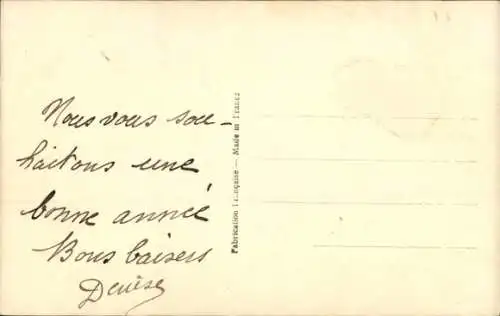 Nous vous sou-
haitons une
bonne année
Bons baisers
Denise
Fabrication Française — Made in France